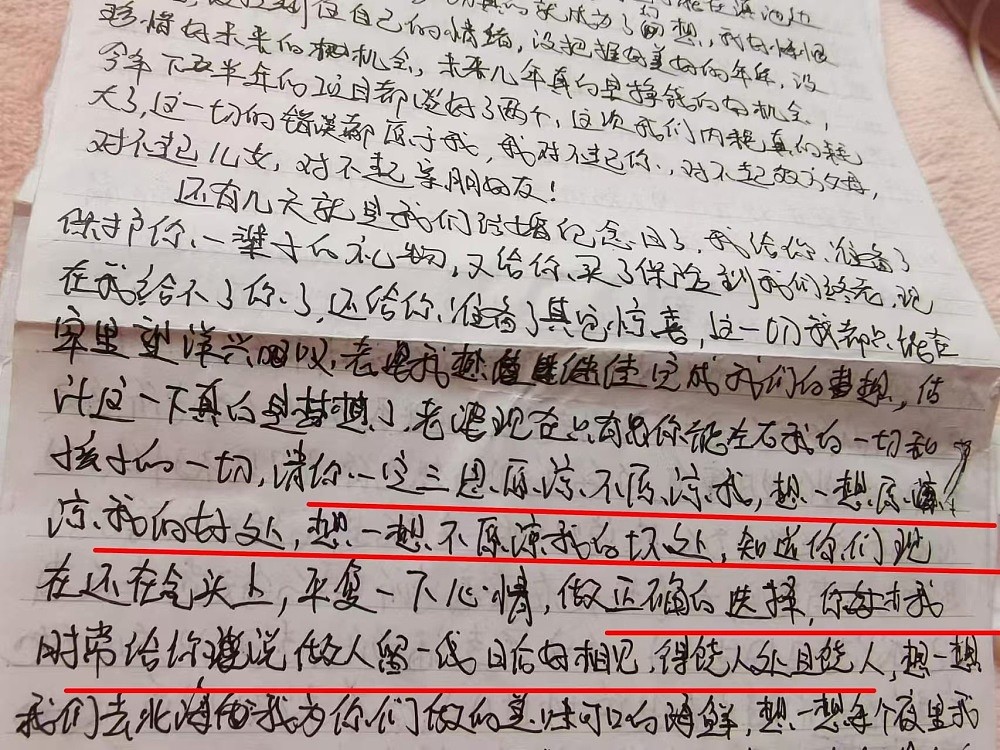 自己的情绪，没把握好美好的年华，没
珍惜好未来的机会，未来几年真的是挣钱的好机会，
今年下半年的项目都谈好了两个，这次我们内耗真的耗
大了，这一切的错误都原于我，我对不起你，对不起双方父母，
对不起儿女，对不起亲朋好友！
还有几天就是我们结婚纪念日了，我给你准备了
保护你一辈子的礼物，又给你买了保险到我们终老，现
在我给不了你了，还给你准备了其它惊喜，这一切我都只能在
这里望洋兴叹，老婆我想继续完成我们的梦想，估
计这一下真的是梦想了，老婆现在只有你能左右我的一切和
孩子的一切，请你一定三思原谅不原谅我，想一想原
谅我的好处，想一想不原谅我的坏处，知道你们现
在还在气头上，平复一下心情，做正确的选择，你对我
时常给你说做人留一线日后好相见，得饶人处且饶人，想一想
我们去北海我为你们做的美味可口的海鲜，想一想每个夜里我